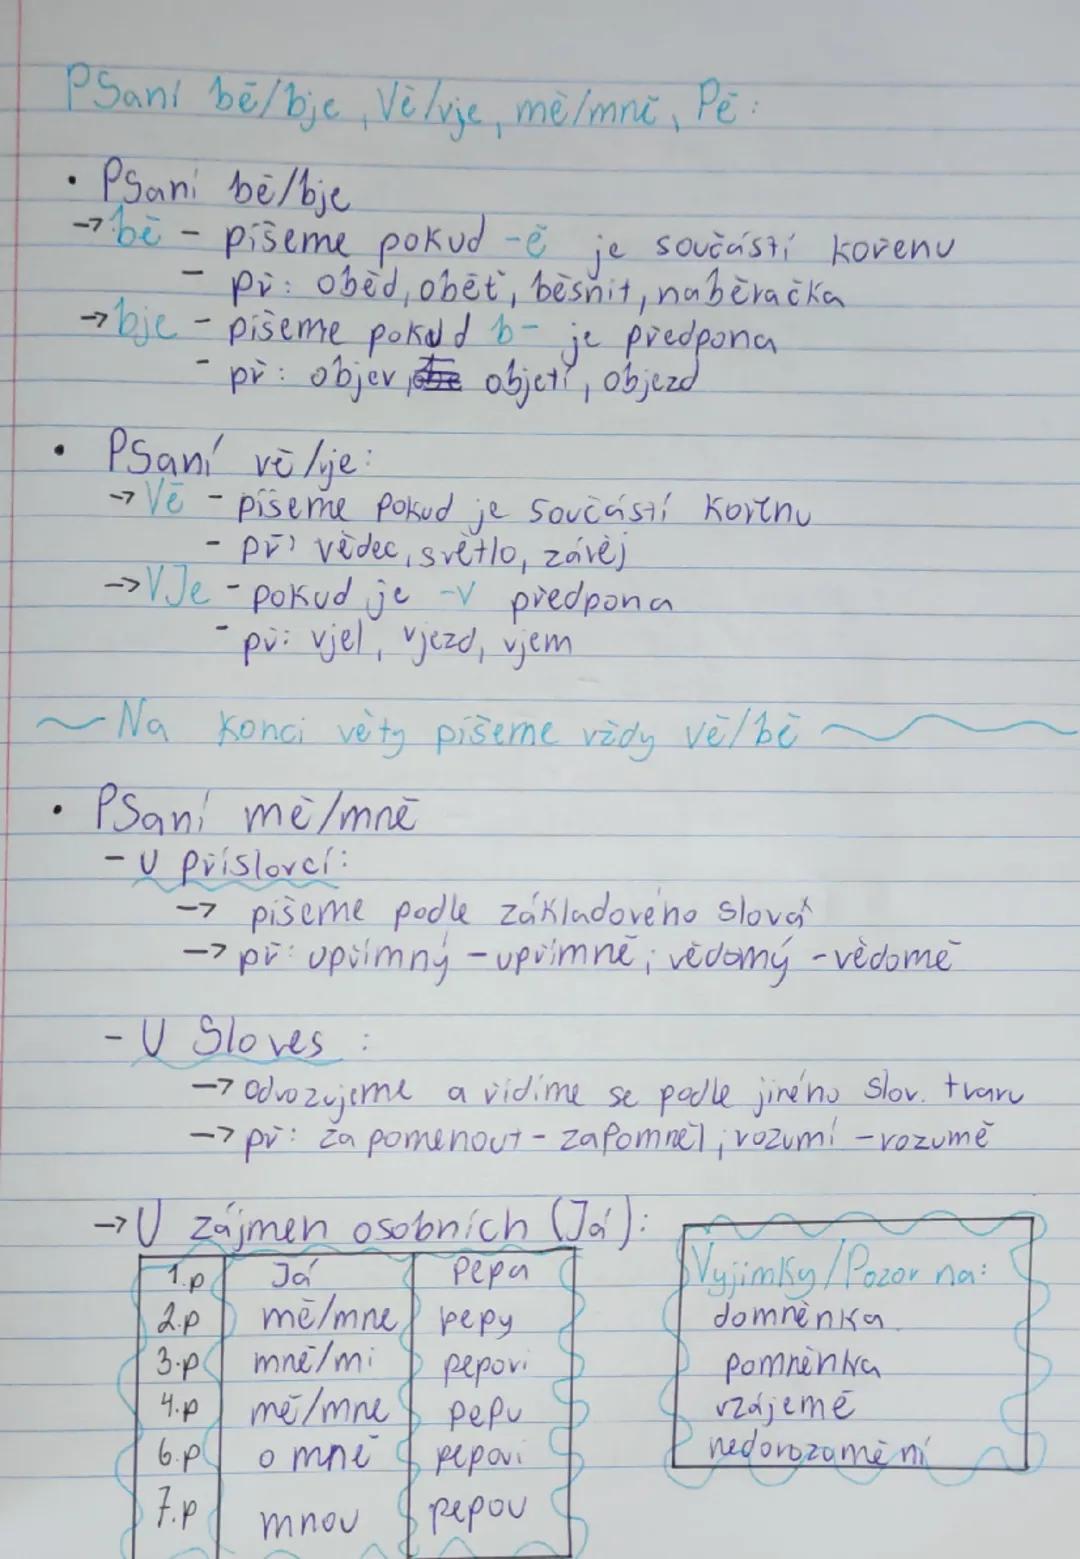 PSaní bě/bje, Vě/vje, mě/mně, Pě:
• PSaní bě/bje
→ bě - píšeme pokud -ě je součástí kořenu
- př: oběd, oběť, běsnit, naběračka
→ bje - píšeme pokud b- je předpona
- př: objev, objetí, objezd
• PSaní vě/vje:
→ Vě - píšeme pokud je součástí kořenu
- př: vědec, světlo, závěj
→ VJe - pokud je -v předpona
- př: vjel, vjezd, vjem
~ Na konci věty píšeme vždy vě/bě ~
• PSaní mě/mně
- U příslovcí:
→ píšeme podle základového slova
→ př: upřímný - upřímně; vědomý - vědomě
- U Sloves :
→ odvozujeme a řídíme se podle jiného slov. tvaru
→ př: zapomenout - zapomněl; rozumí - rozumě
→ U zájmen osobních (Já):
1.p Já Pepa
2.p mě/mne pepy
3.p mně/mi pepovi
4.p mě/mne pepu
6.p o mně pepovi
7.p mnou pepou
Vyjímky/Pozor na:
domněnka
pomněnka
vzájemě
nedorozumění